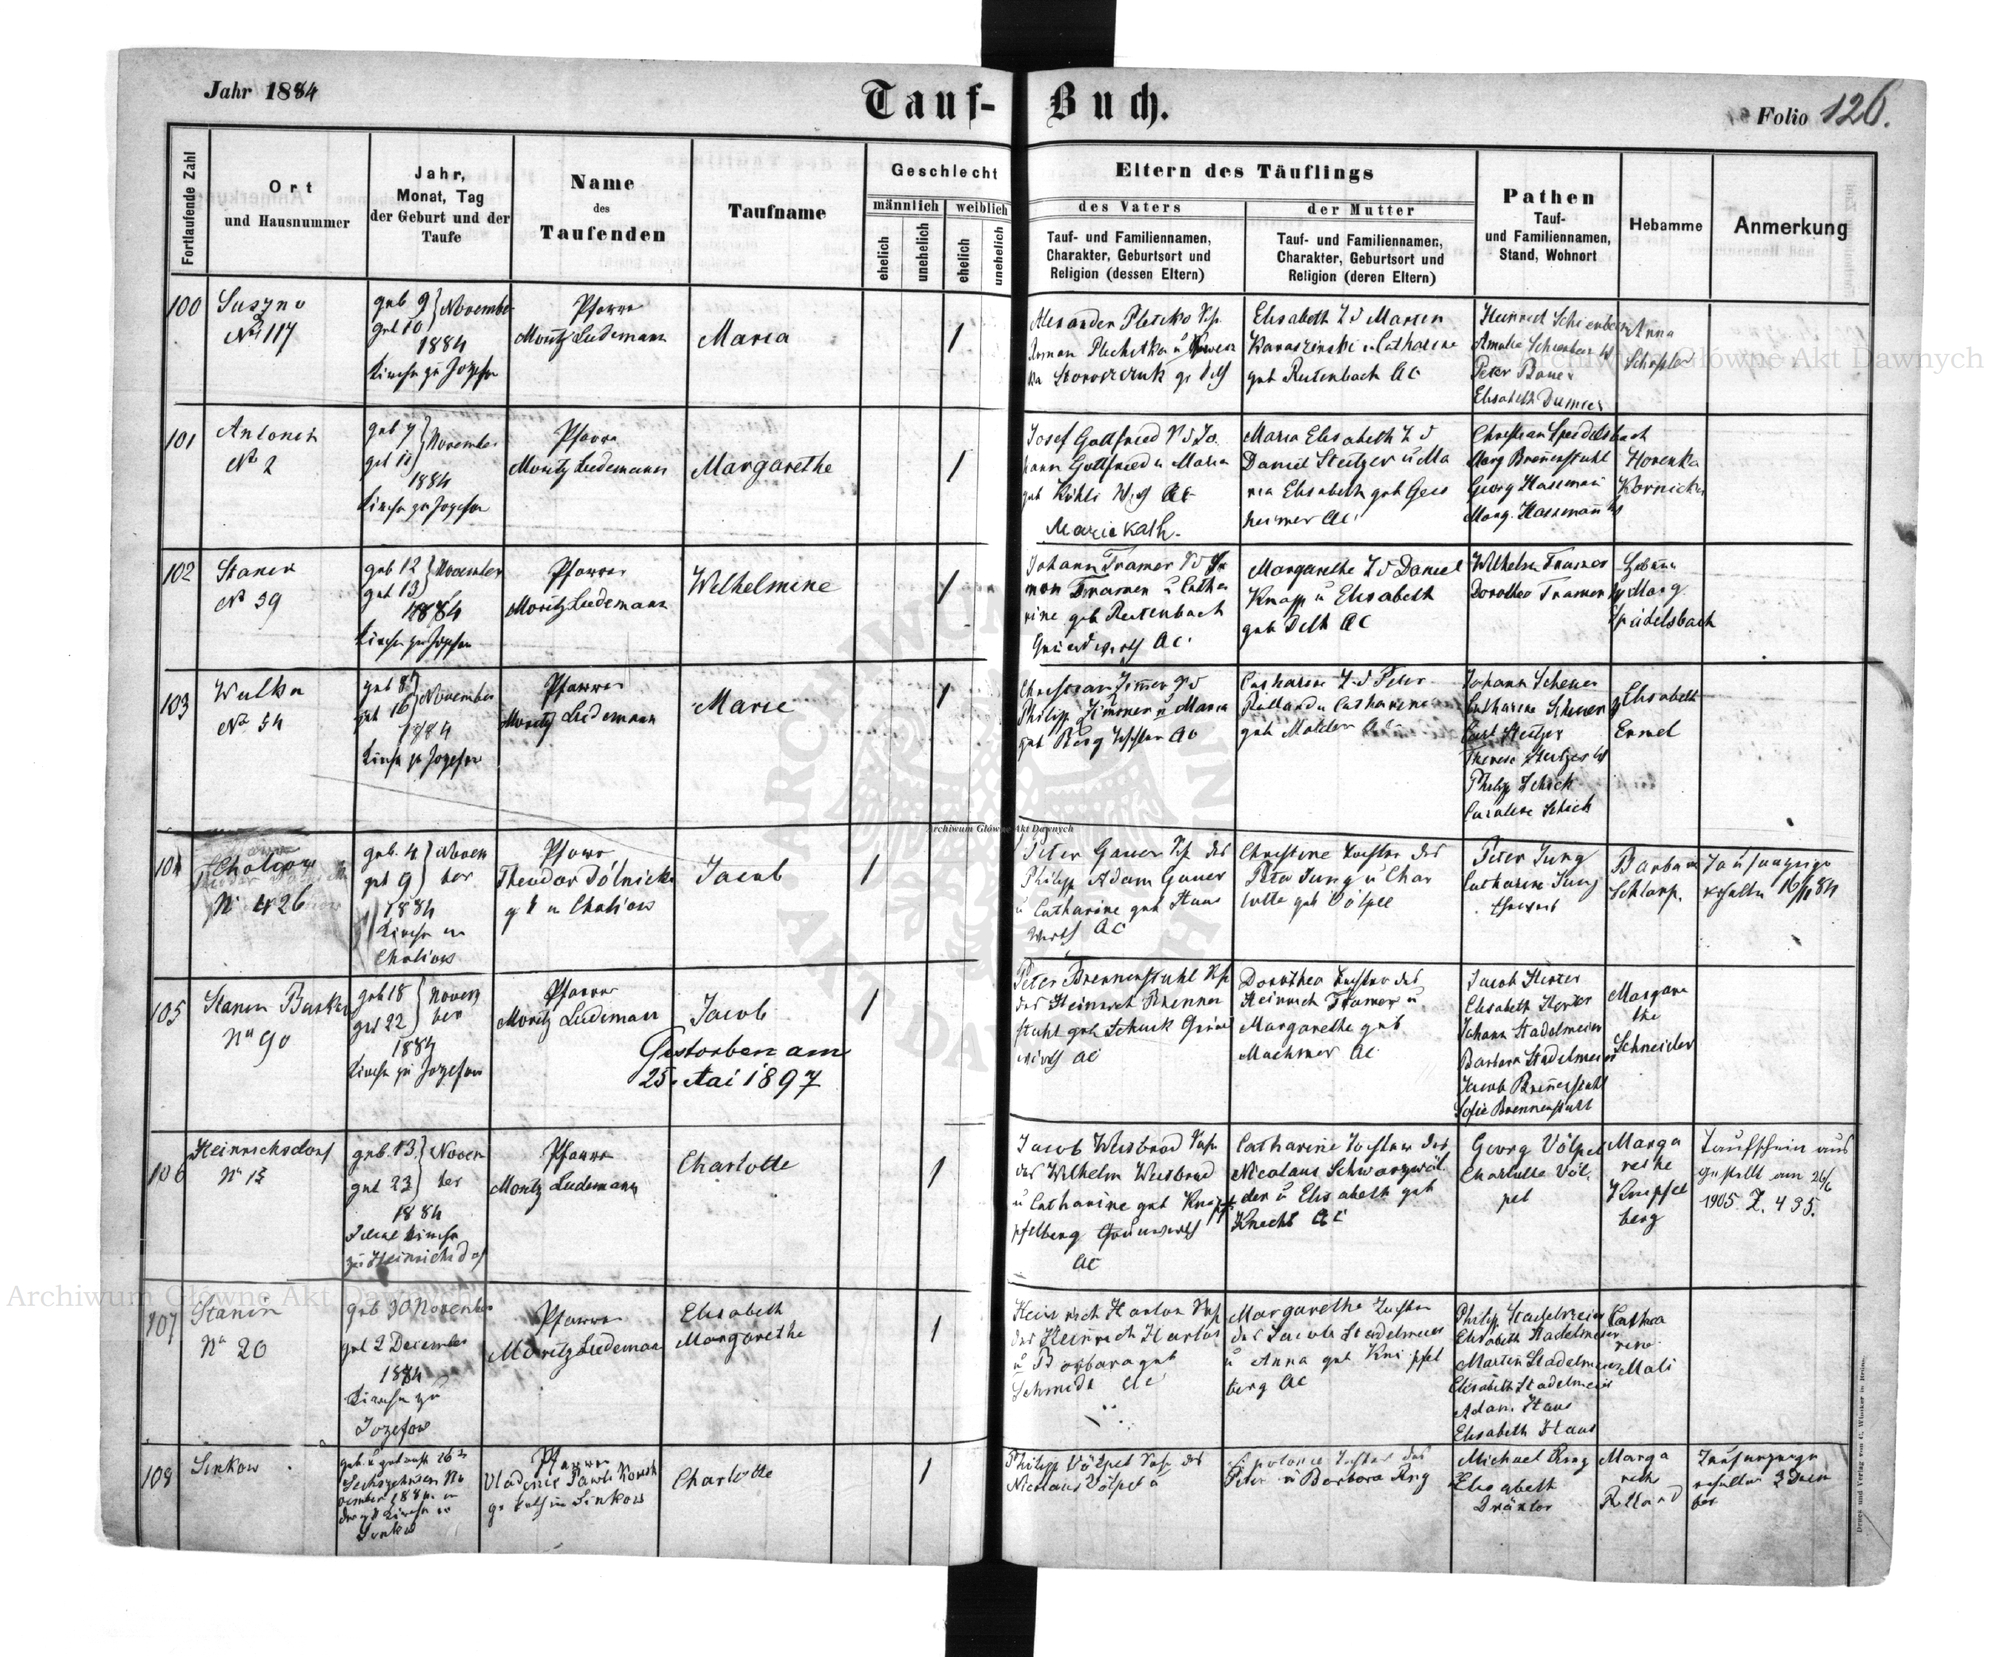 Jahr 1884
Tauf-Buch.
Folio 126.
Fortlaufende Zahl
Ort
und Hausnummer
Jahr,
Monat, Tag
der Geburt und der
Taufe
Name
des
Taufenden
Taufname
Geschlecht
männlich
weiblich
ehelich
unehelich
ehelich
unehelich
Eltern des Täuflings
des Vaters
Tauf- und Familiennamen,
Charakter, Geburtsort und
Religion (dessen Eltern)
der Mutter
Tauf- und Familiennamen,
Charakter, Geburtsort und
Religion (deren Eltern)
Pathen
Tauf-
und Familiennamen,
Stand, Wohnort
Hebamme
Anmerkung
100
Suszno
No 117
geb 9 November
get 10
1884
Kirche zu Jozefow
Pfarrer
Moritz Ludemann
Maria
1
Alexander
Elisabeth T d Martin
Catharine
geb Rutenbach AC
Peter Bauer
Elisabeth
Anna
101
Antonin
No 2
geb 7 November
get 11
1884
Kirche zu Jozefow
Pfarrer
Moritz Ludemann
Margarethe
1
Josef Gottfried S d Jo
hann Gottfried u Maria
geb AC
Marie kath.
Maria Elisabeth T d
Daniel Steitzer u Ma
ria Elisabeth geb Geis
heimer AC
Christian Speidelsbach
Marg Brennenstuhl
Georg Hassmann
Marg. Hassmann
Horenka
Kornicka
102
Stanin
No 39
geb 12 November
get 13
1884
Kirche zu Jozefow
Pfarrer
Moritz Ludemann
Wilhelmine
1
Johann Tramer S d
Tramer u Catha
rine geb Rutenbach
Grundwirth AC
Margarethe T d Daniel
Knapp u Elisabeth
geb Delh AC
Wilhelm Tramer
Dorothea Tramer
Marg
Speidelsbach
103
Wulka
No 54
geb 8 November
get 16
1884
Kirche zu Jozefow
Pfarrer
Moritz Ludemann
Marie
1
Christian Zimmer S d
Philipp Zimmer u Maria
geb Berg AC
Catharine T d Peter
Rolland u Catharine
geb AC
Johann Scherer
Catharine Scherer
Carl Steitzer
Therese Steitzer
Philipp Schick
Caroline Schick
Elisabeth
Ermel
104
Choliow
No 26
geb. 4 Novem
get 9 ber
1884
Kirche in
Choliow
Pfarrer
Theodor Dolnicki
g k in Choliow
Jacob
1
Peter Gauer Sohn des
Philipp Adam Gauer
u Catharine geb Haas
Wirth AC
Christine Tochter des
Peter Jung u Char
lotte geb Völpel
Peter Jung
Catharine Jung
Barbara
Schlarp.
Taufanzeige
erhalten 16/11 84
105
Stanin
No 90
geb 18 Novem
get 22 ber
1884
Kirche zu Jozefow
Pfarrer
Moritz Ludemann
Jacob
Gestorben am
25. Mai 1897
1
Peter Brennenstuhl Sohn
des Heinrich Brennen
stuhl geb Schuck Grund
wirth AC
Dorothea Tochter des
Heinrich Tramer u
Margarethe geb
Machmer AC
Jacob Herter
Elisabeth Herter
Johann Stadelmeier
Barbara Stadelmeier
Jacob Brennenstuhl
Sofie Brennenstuhl
Margare
the
Schneider
106
Heinrichsdorf
No 13
geb. 13 Novem
get 23 ber
1884
Filialkirche
zu Heinrichsdorf
Pfarrer
Moritz Ludemann
Charlotte
1
Jacob Weisbrod Sohn
des Wilhelm Weisbrod
u Catharine geb
pfelberg Grundwirth
AC
Catharine Tochter des
Nicolaus Schwarzwäl
der u Elisabeth geb
Knecht AC
Georg Völpel
Charlotte Völ
pel
Marga
rethe
Knipfel
berg
Taufschein aus
gestellt am 26/6
1905 Z. 435.
107
Stanin
No 20
geb 30 November
get 2 December
1884
Kirche zu
Jozefow
Pfarrer
Moritz Ludemann
Elisabeth
Margarethe
1
Heinrich Harlos Sohn
des Heinrich Harlos
u Barbara geb
Schmidt AC
Margarethe Tochter
des Jacob Stadelmeier
u Anna geb Knipfel
berg AC
Philipp Stadelmeier
Elisabeth Stadelmeier
Martin Stadelmeier
Elisabeth Stadelmeier
Adam Haas
Elisabeth Haas
Catha
rine
Mali
108
Sinkow
geb. u getauft 26
Sechszehnten No
vember 1884 in
der g k Kirche in
Sinkow
Pfarrer
g kath in Sinkow
Charlotte
1
Philipp Völpel Sohn des
Nicolaus Völpel u
Apolonie Tochter des
Peter u Barbara Ring
Michael Ring
Elisabeth
Marga
rethe
Rolland
Taufanzeige
erhalten 3 Decem
ber
Druck und Verlag von C. Winiker in Brünn.
Archiwum Główne Akt Dawnych
Archiwum Główne Akt Dawnych
Archiwum Główne Akt Dawnych
ARCHIWUM GŁÓWNE AKT DAWNYCH